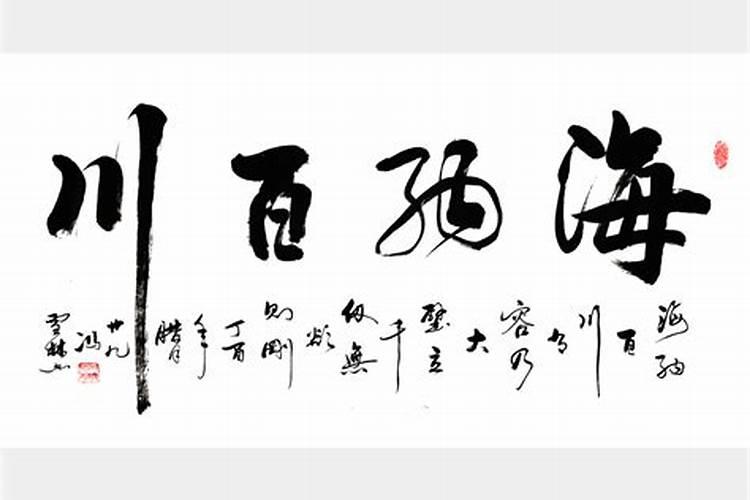 海纳百川
海纳
百
川
有
容乃
大
壁立
千
仞無
欲
则剛
丁酉
年
腊月
廿九
冯
雪林